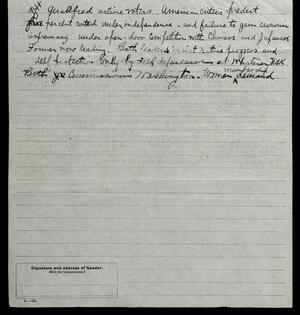 But qualified active voters. American critics predict
five percent voted under independence and failure to gain economic
supremacy under open-door competition with Chinese and Japanese
Former now leading. Both leaders insist true progress and
self protection only by independence at
membership
Both go Commissions Washington. Women demand
Signature and address of Sender.
(Not for transmission.)